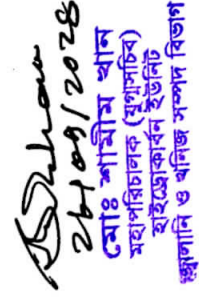 ২৮/০৭/২০২৪
মোঃ শামীম খান
মহাপরিচালক (যুগ্মসচিব)
হাইড্রোকার্বন ইউনিট
জ্বালানি ও খনিজ সম্পদ বিভাগ